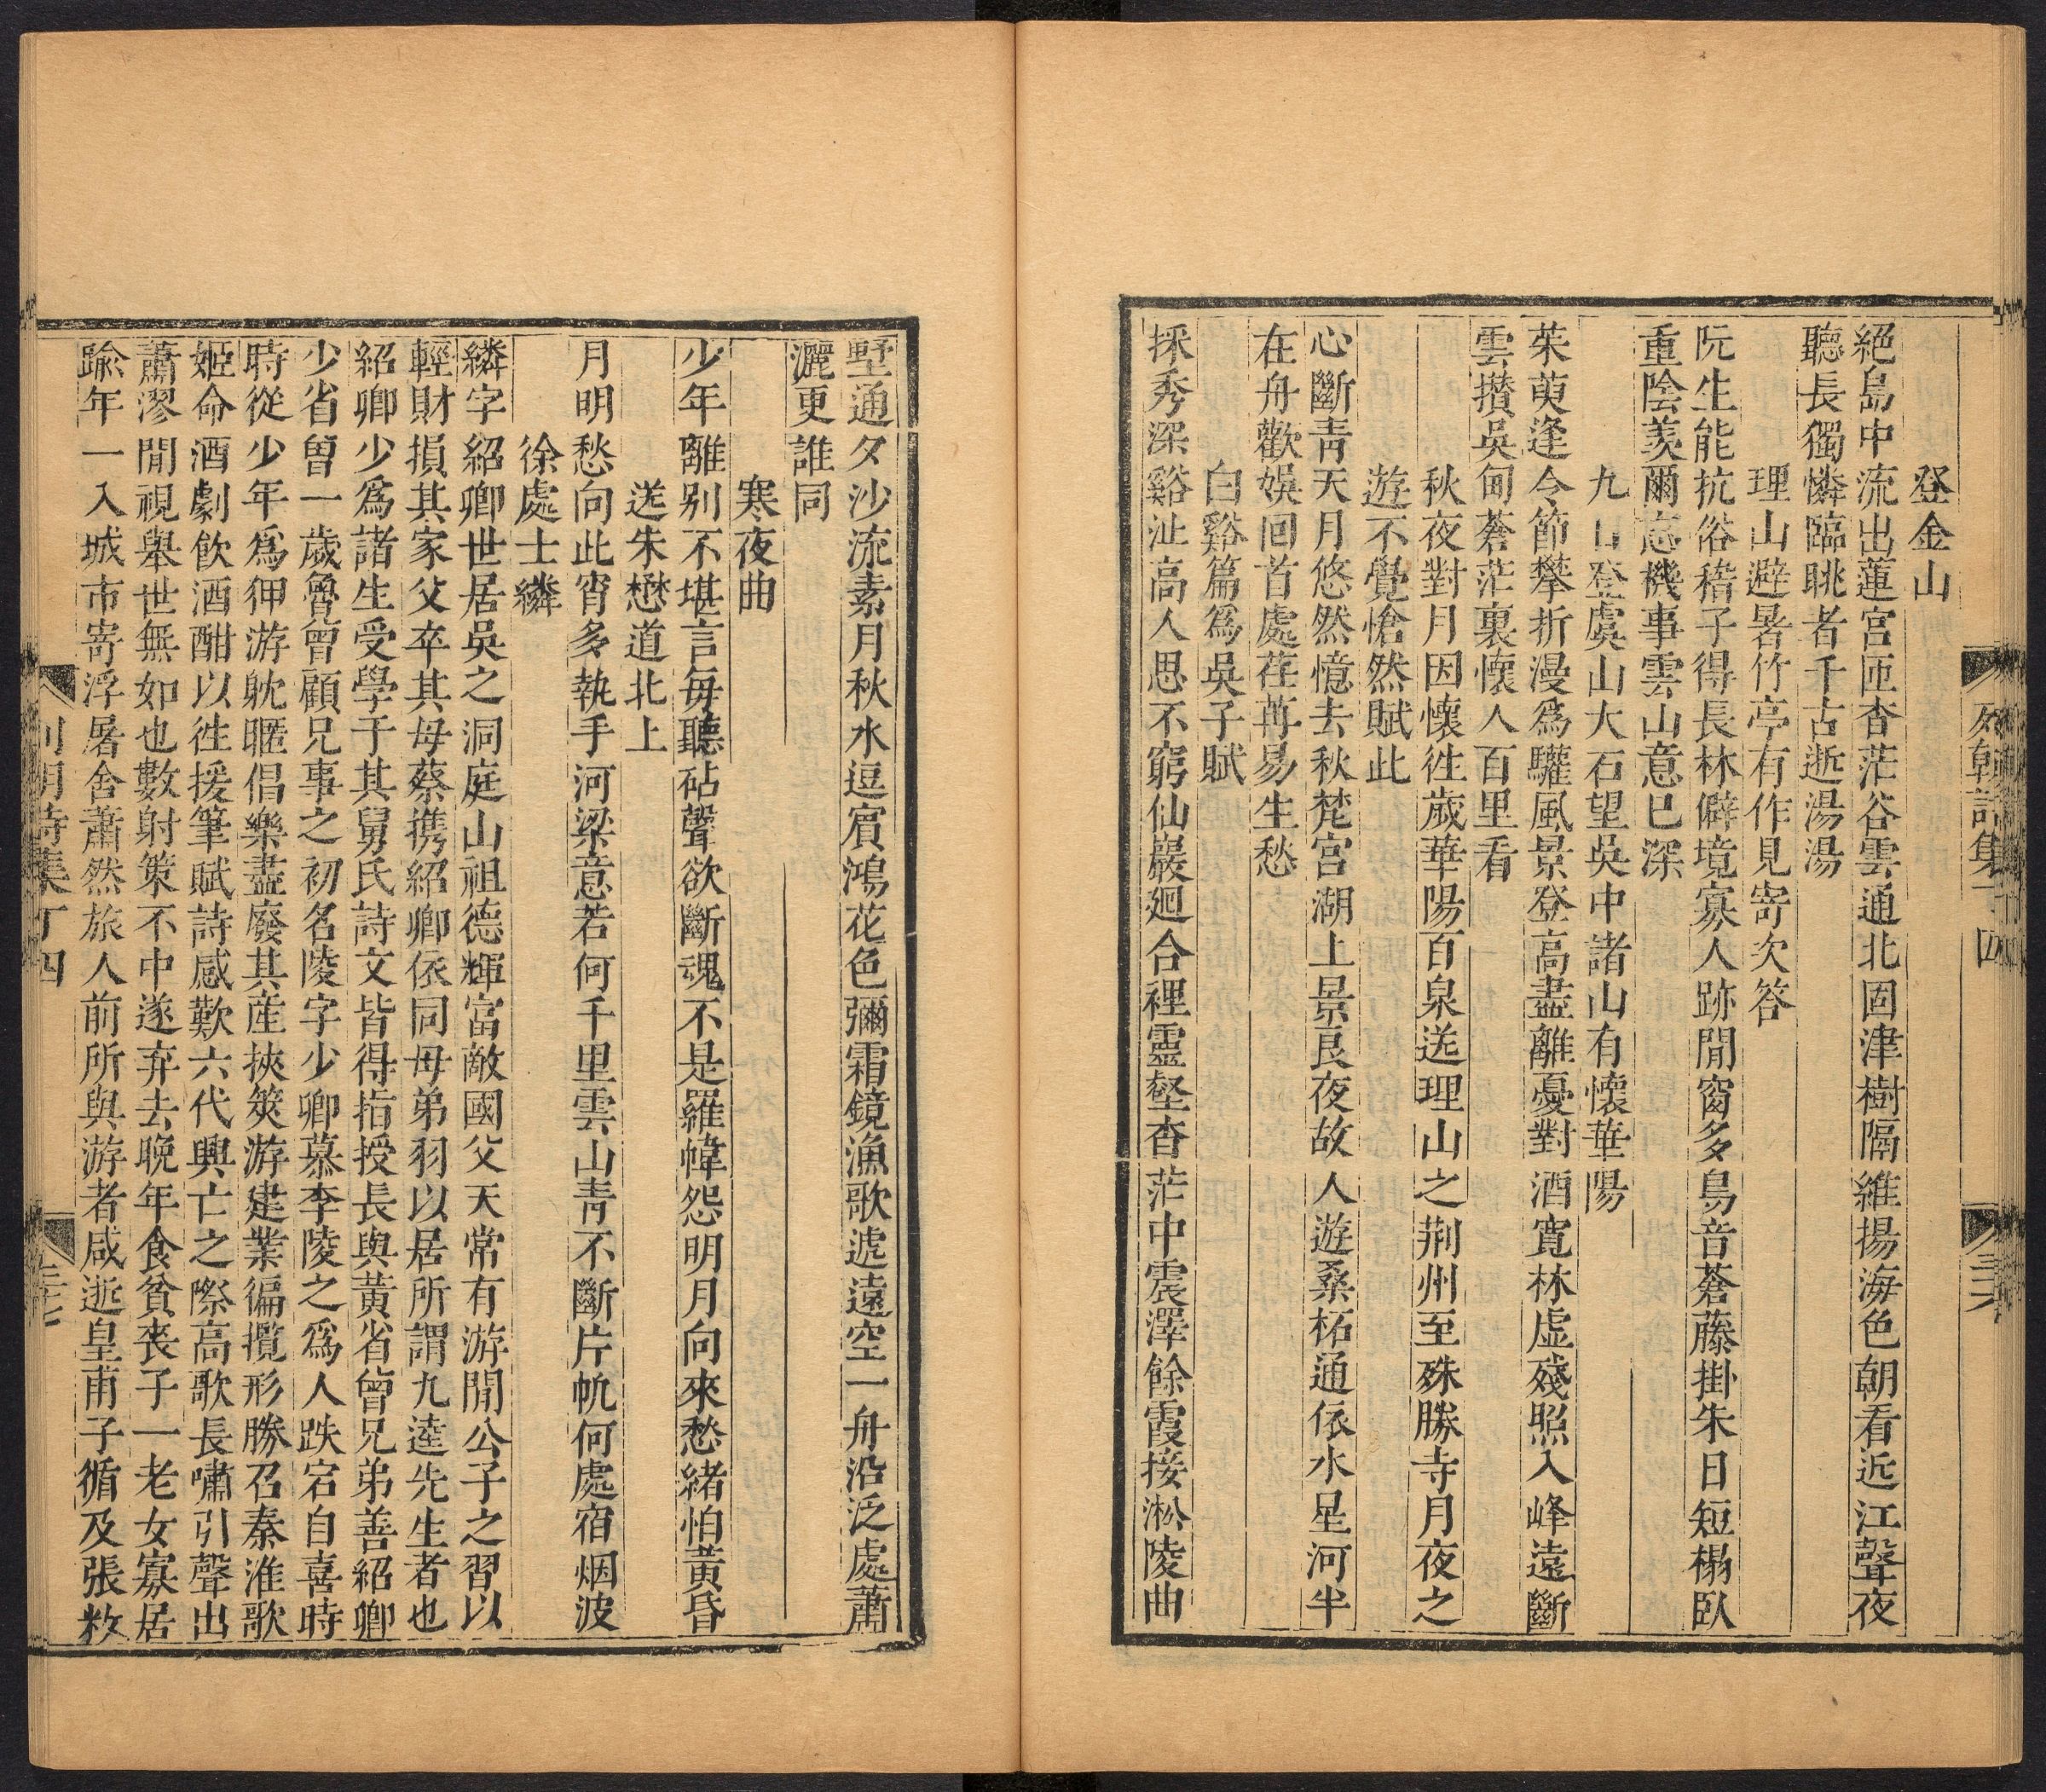 登金山
絕島中流出蓮宮匝杳茫谷雲通北固津樹隔維揚海色朝看近江聲夜
聽長獨憐臨眺者千古逝湯湯
理山避暑竹亭有作見寄次答
阮生能抗俗稽子得長林僻境寡人跡閒窗多鳥音蒼藤掛朱日短榻臥
重陰羨爾忘機事雲山意已深
九日登虞山大石望吳中諸山有懷華陽
茱萸逢令節攀折漫爲驩風景登高盡離憂對酒寬林虛殘照入峰遠斷
雲攢吳甸蒼茫裏懷人百里看
秋夜對月因懷徃歲華陽百泉送理山之荆州至殊勝寺月夜之
遊不覺愴然賦此
心斷青天月悠然憶去秋梵宮湖上景良夜故人遊桑柘通依水星河半
在舟歡娛回首處荏苒易生愁
白谿篇爲吳子賦
採秀深谿沚高人思不窮仙巖廻合裡靈壑杳茫中震澤餘霞接淞陵曲
列朝詩集丁四
三六
墅通夕沙流素月秋水逗賓鴻花色彌霜鏡漁歌遞遠空一舟沿泛處蕭
灑更誰同
寒夜曲
少年離别不堪言每聽砧聲欲斷魂不是羅幃怨明月向來愁緒怕黃昏
送朱懋道北上
月明愁向此宵多執手河梁意若何千里雲山青不斷片帆何處宿烟波
徐處士繗
繗字紹卿世居吳之洞庭山祖德輝富敵國父天常有游閒公子之習以
輕財損其家父卒其母蔡携紹卿依同母弟羽以居所謂九逵先生者也
紹卿少爲諸生受學于其舅氏詩文皆得指授長與黃省曾兄弟善紹卿
少省曾一歲魯曾顧兄事之初名陵字少卿慕李陵之爲人跌宕自喜時
時從少年爲狎游躭暱倡樂盡廢其産挾筴游建業徧攬形勝召秦淮歌
姬命酒劇飲酒酣以徃援筆賦詩感歎六代興亡之際高歌長嘯引聲出
蕭漻閒視舉世無如也數射策不中遂弃去晚年食貧喪子一老女寡居
踰年一入城市寄浮屠舍蕭然旅人前所與游者咸逝皇甫子循及張敉
列朝詩集丁四
三七